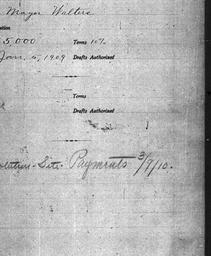 Mayor Walters
ation
5,000 Terms 10%
Jan. 5, 1909 Drafts Authorized
Terms
Drafts Authorized
Site Payments 3/9/10.